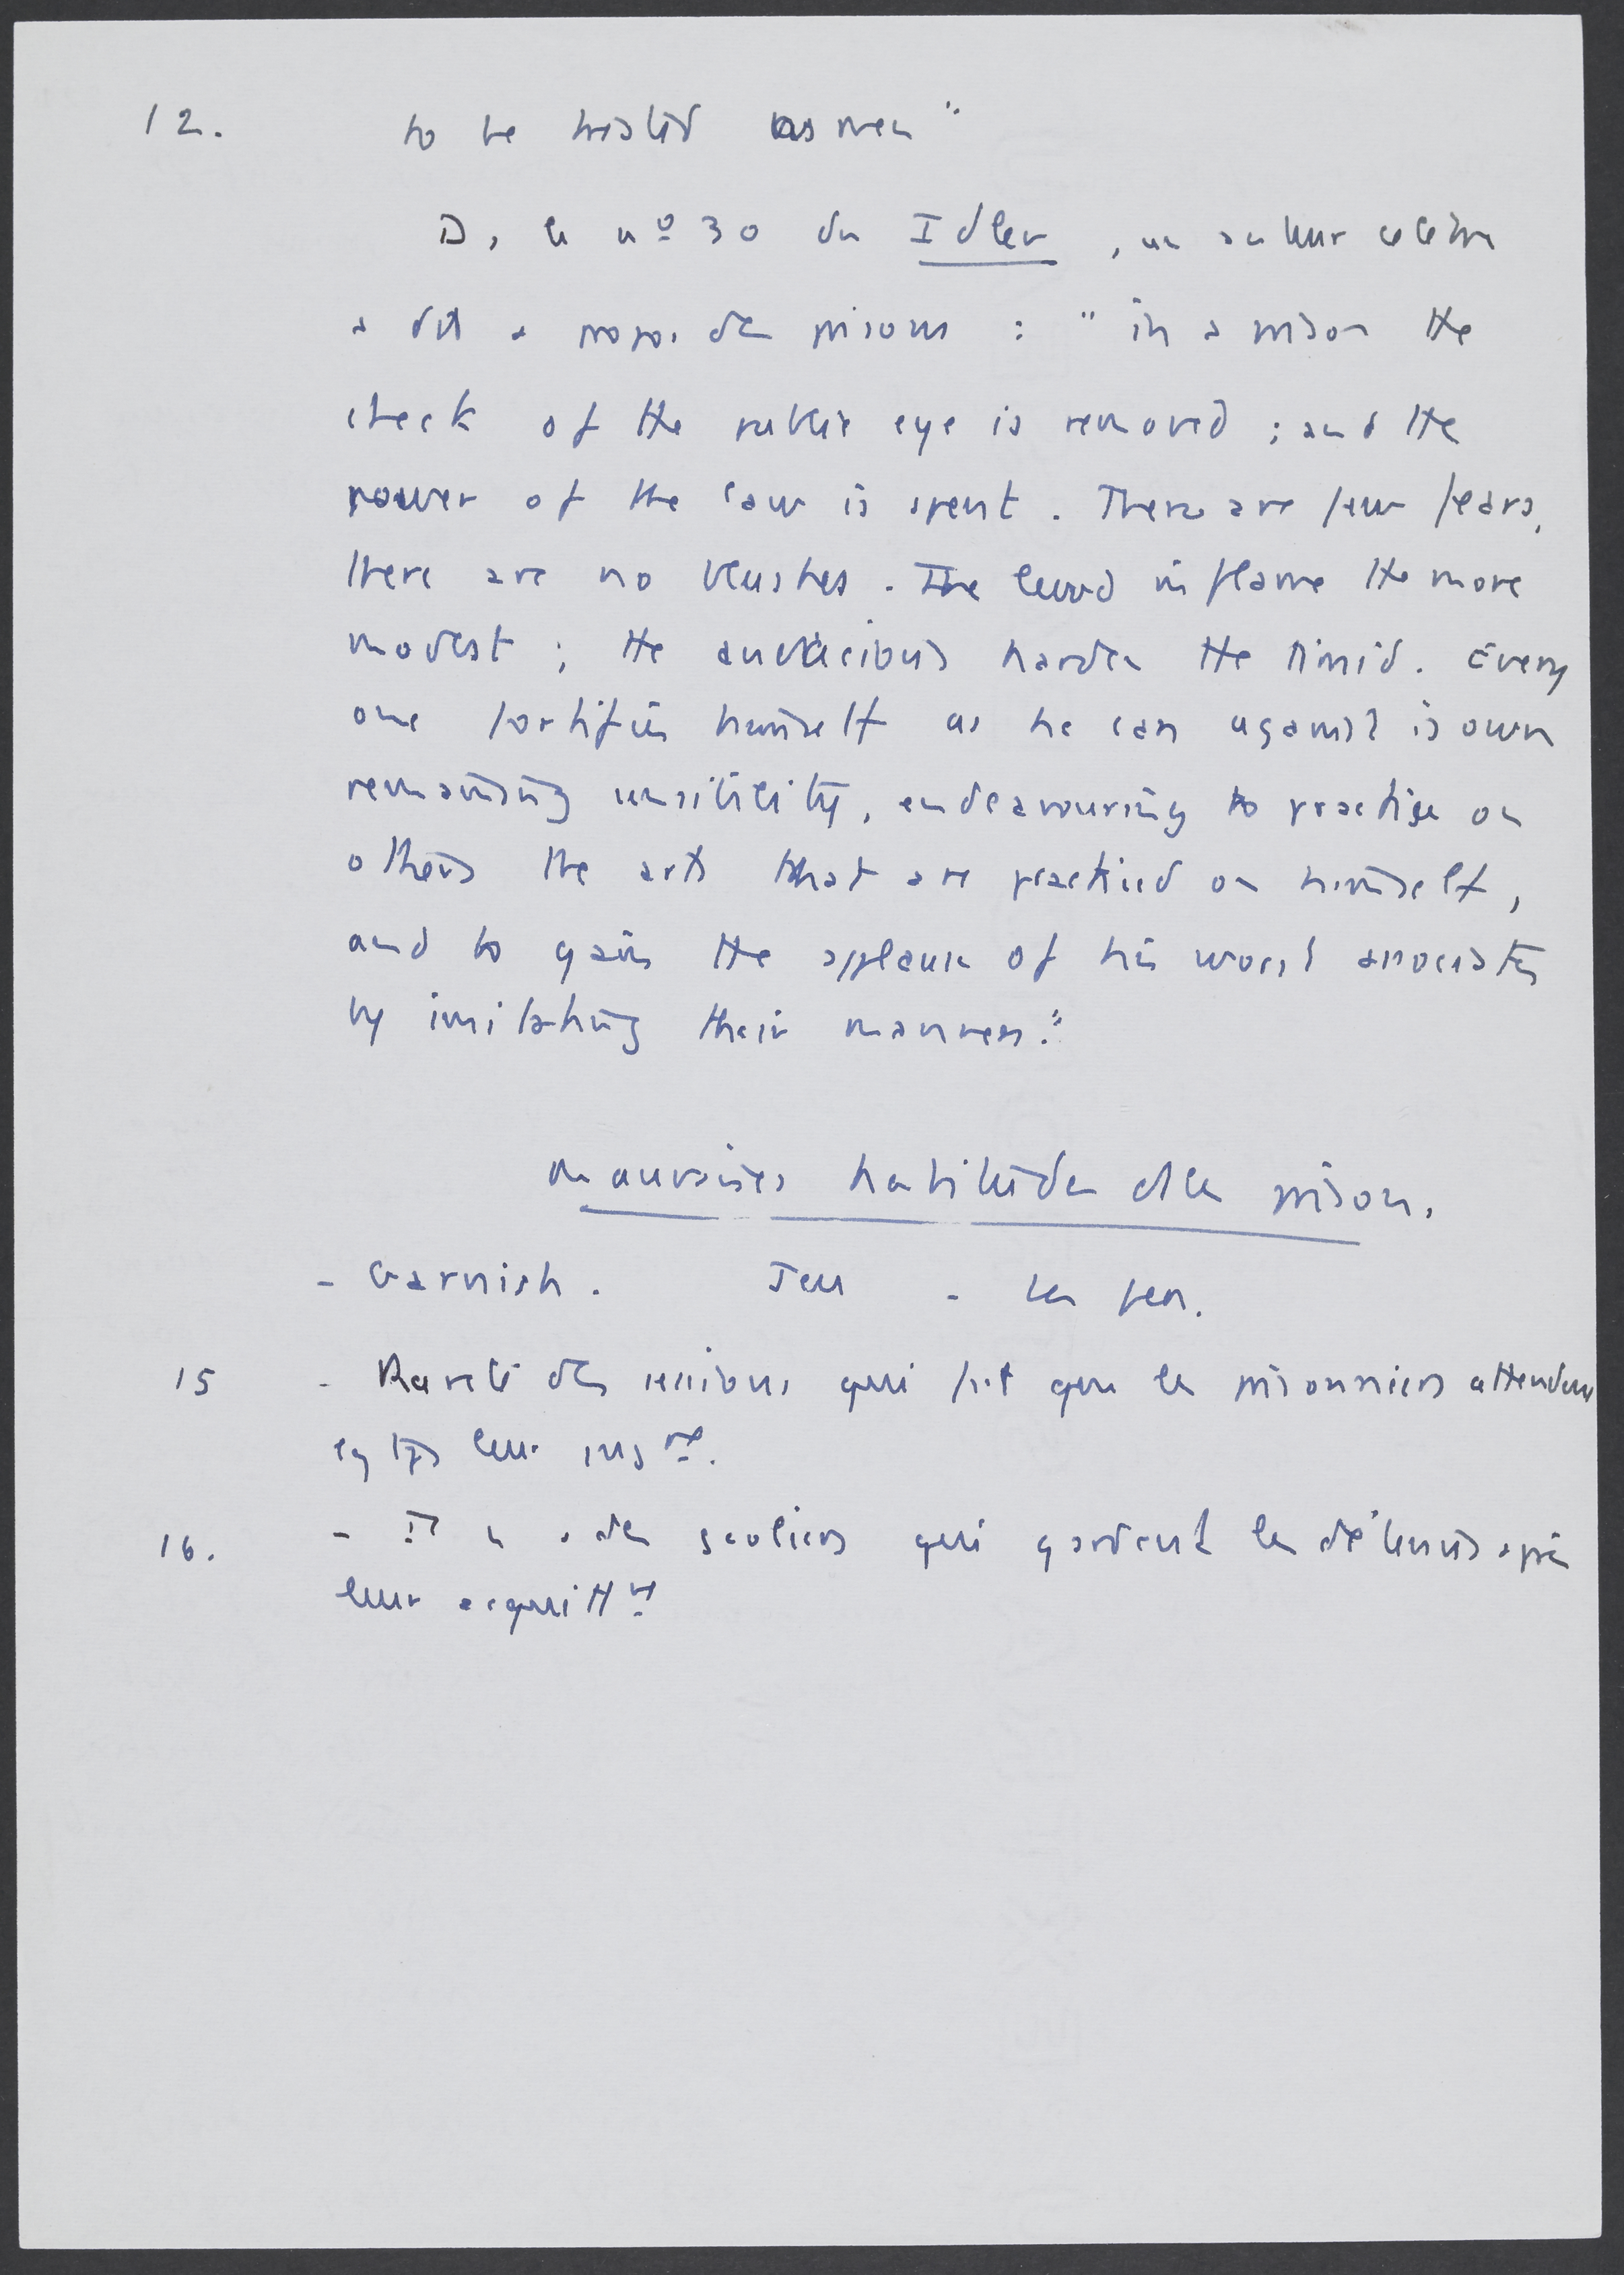 12. to be treated as men"
D. le nº 30 du Idler, un auteur célèbre
a dit a propos des prisons : "in a prison the
check of the public eye is removed ; and the
power of the law is spent. There are few fears,
there are no blushes. The lewd inflame the more
modest ; the audacious harden the timid. Every
one fortifies himself as he can against is own
remaining sensibility, endeavouring to practise on
others the arts that are practised on himself,
and to gain the applause of his worst associates
by imitating their manners."
mauvaises habitudes de la prison.
- Garnish. Jeu - les fers.
15 - Rareté des sessions qui fait que les prisonniers attendent
lg tps leur jugt.
16. - Il y a des geoliers qui gardent les détenus après
leur acquittt